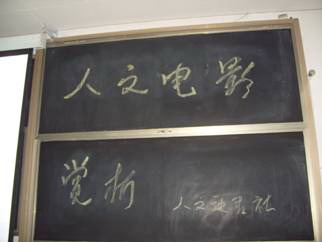 人文电影
赏析 人文电影社